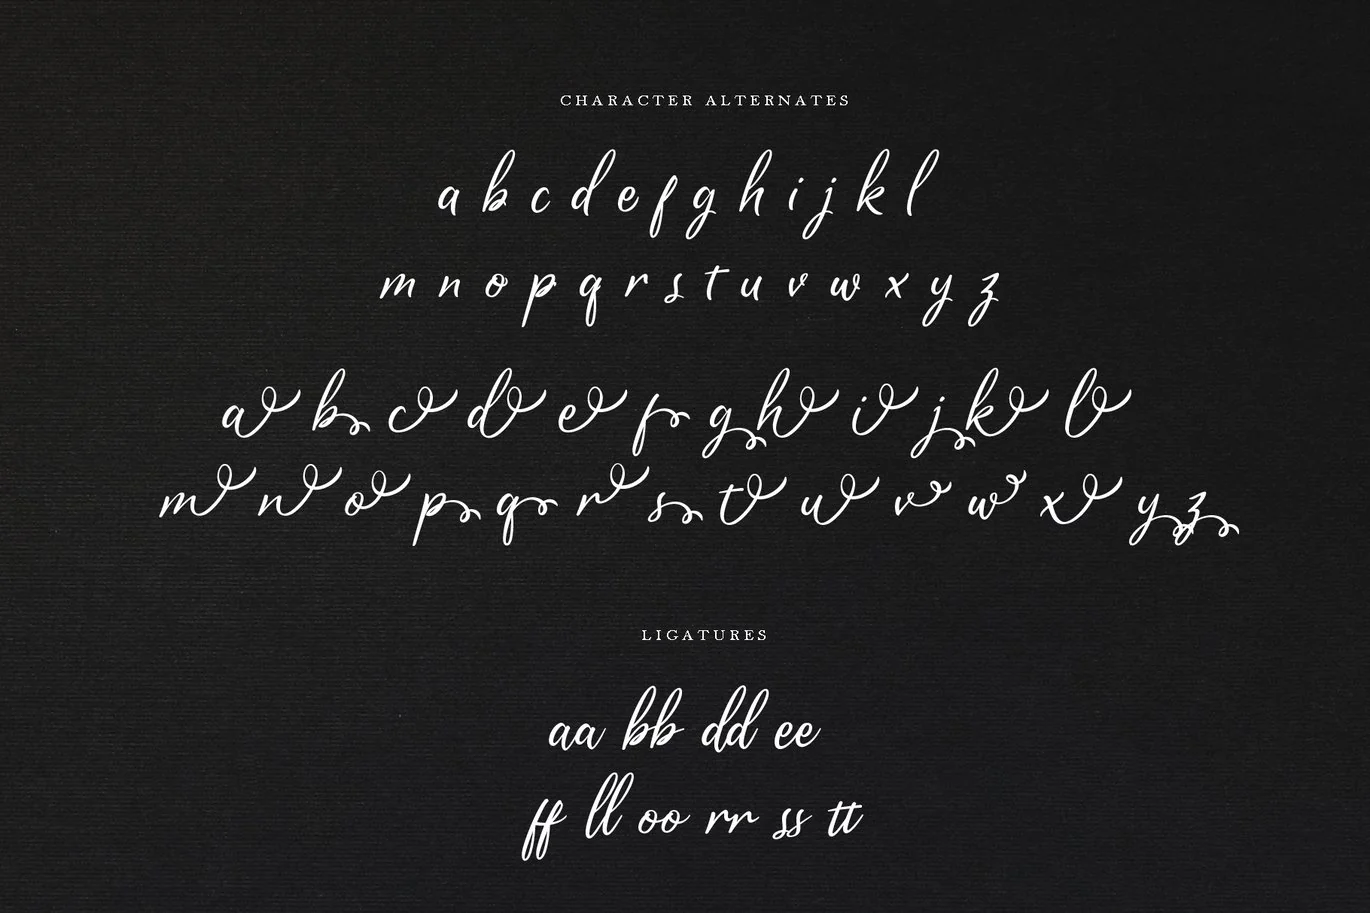 CHARACTER ALTERNATES
a b c d e f g h i j k l
m n o p q r s t u v w x y z
a b c d e f g h i j k l
m n o p q r s t u v w x y z
LIGATURES
aa bb dd ee
ff ll oo rr ss tt